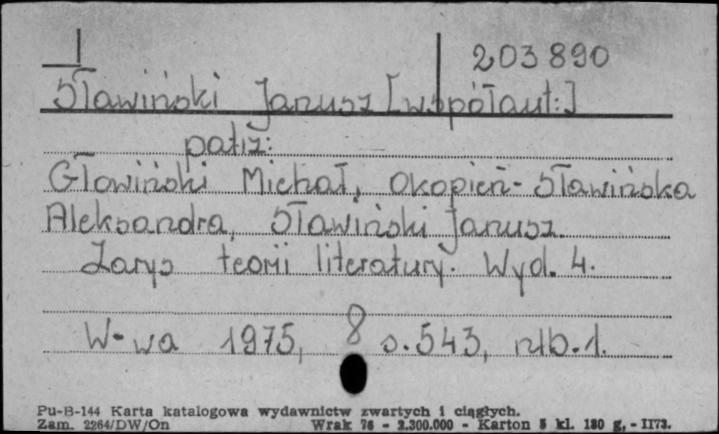 203 890
Sławiński Janusz [współaut:]
patrz:
Głowiński Michał, Okopień-Sławińska
Aleksandra, Sławiński Janusz.
Zarys teorii literatury. Wyd. 4.
W-wa 1975, 8 s. 543, nlb. 1.
Pu-B-144 Karta katalogowa wydawnictw zwartych i ciągłych.
Zam. 2264/DW/On Wrak 76 - 2.300.000 - Karton 5 kl. 180 g, - II73.